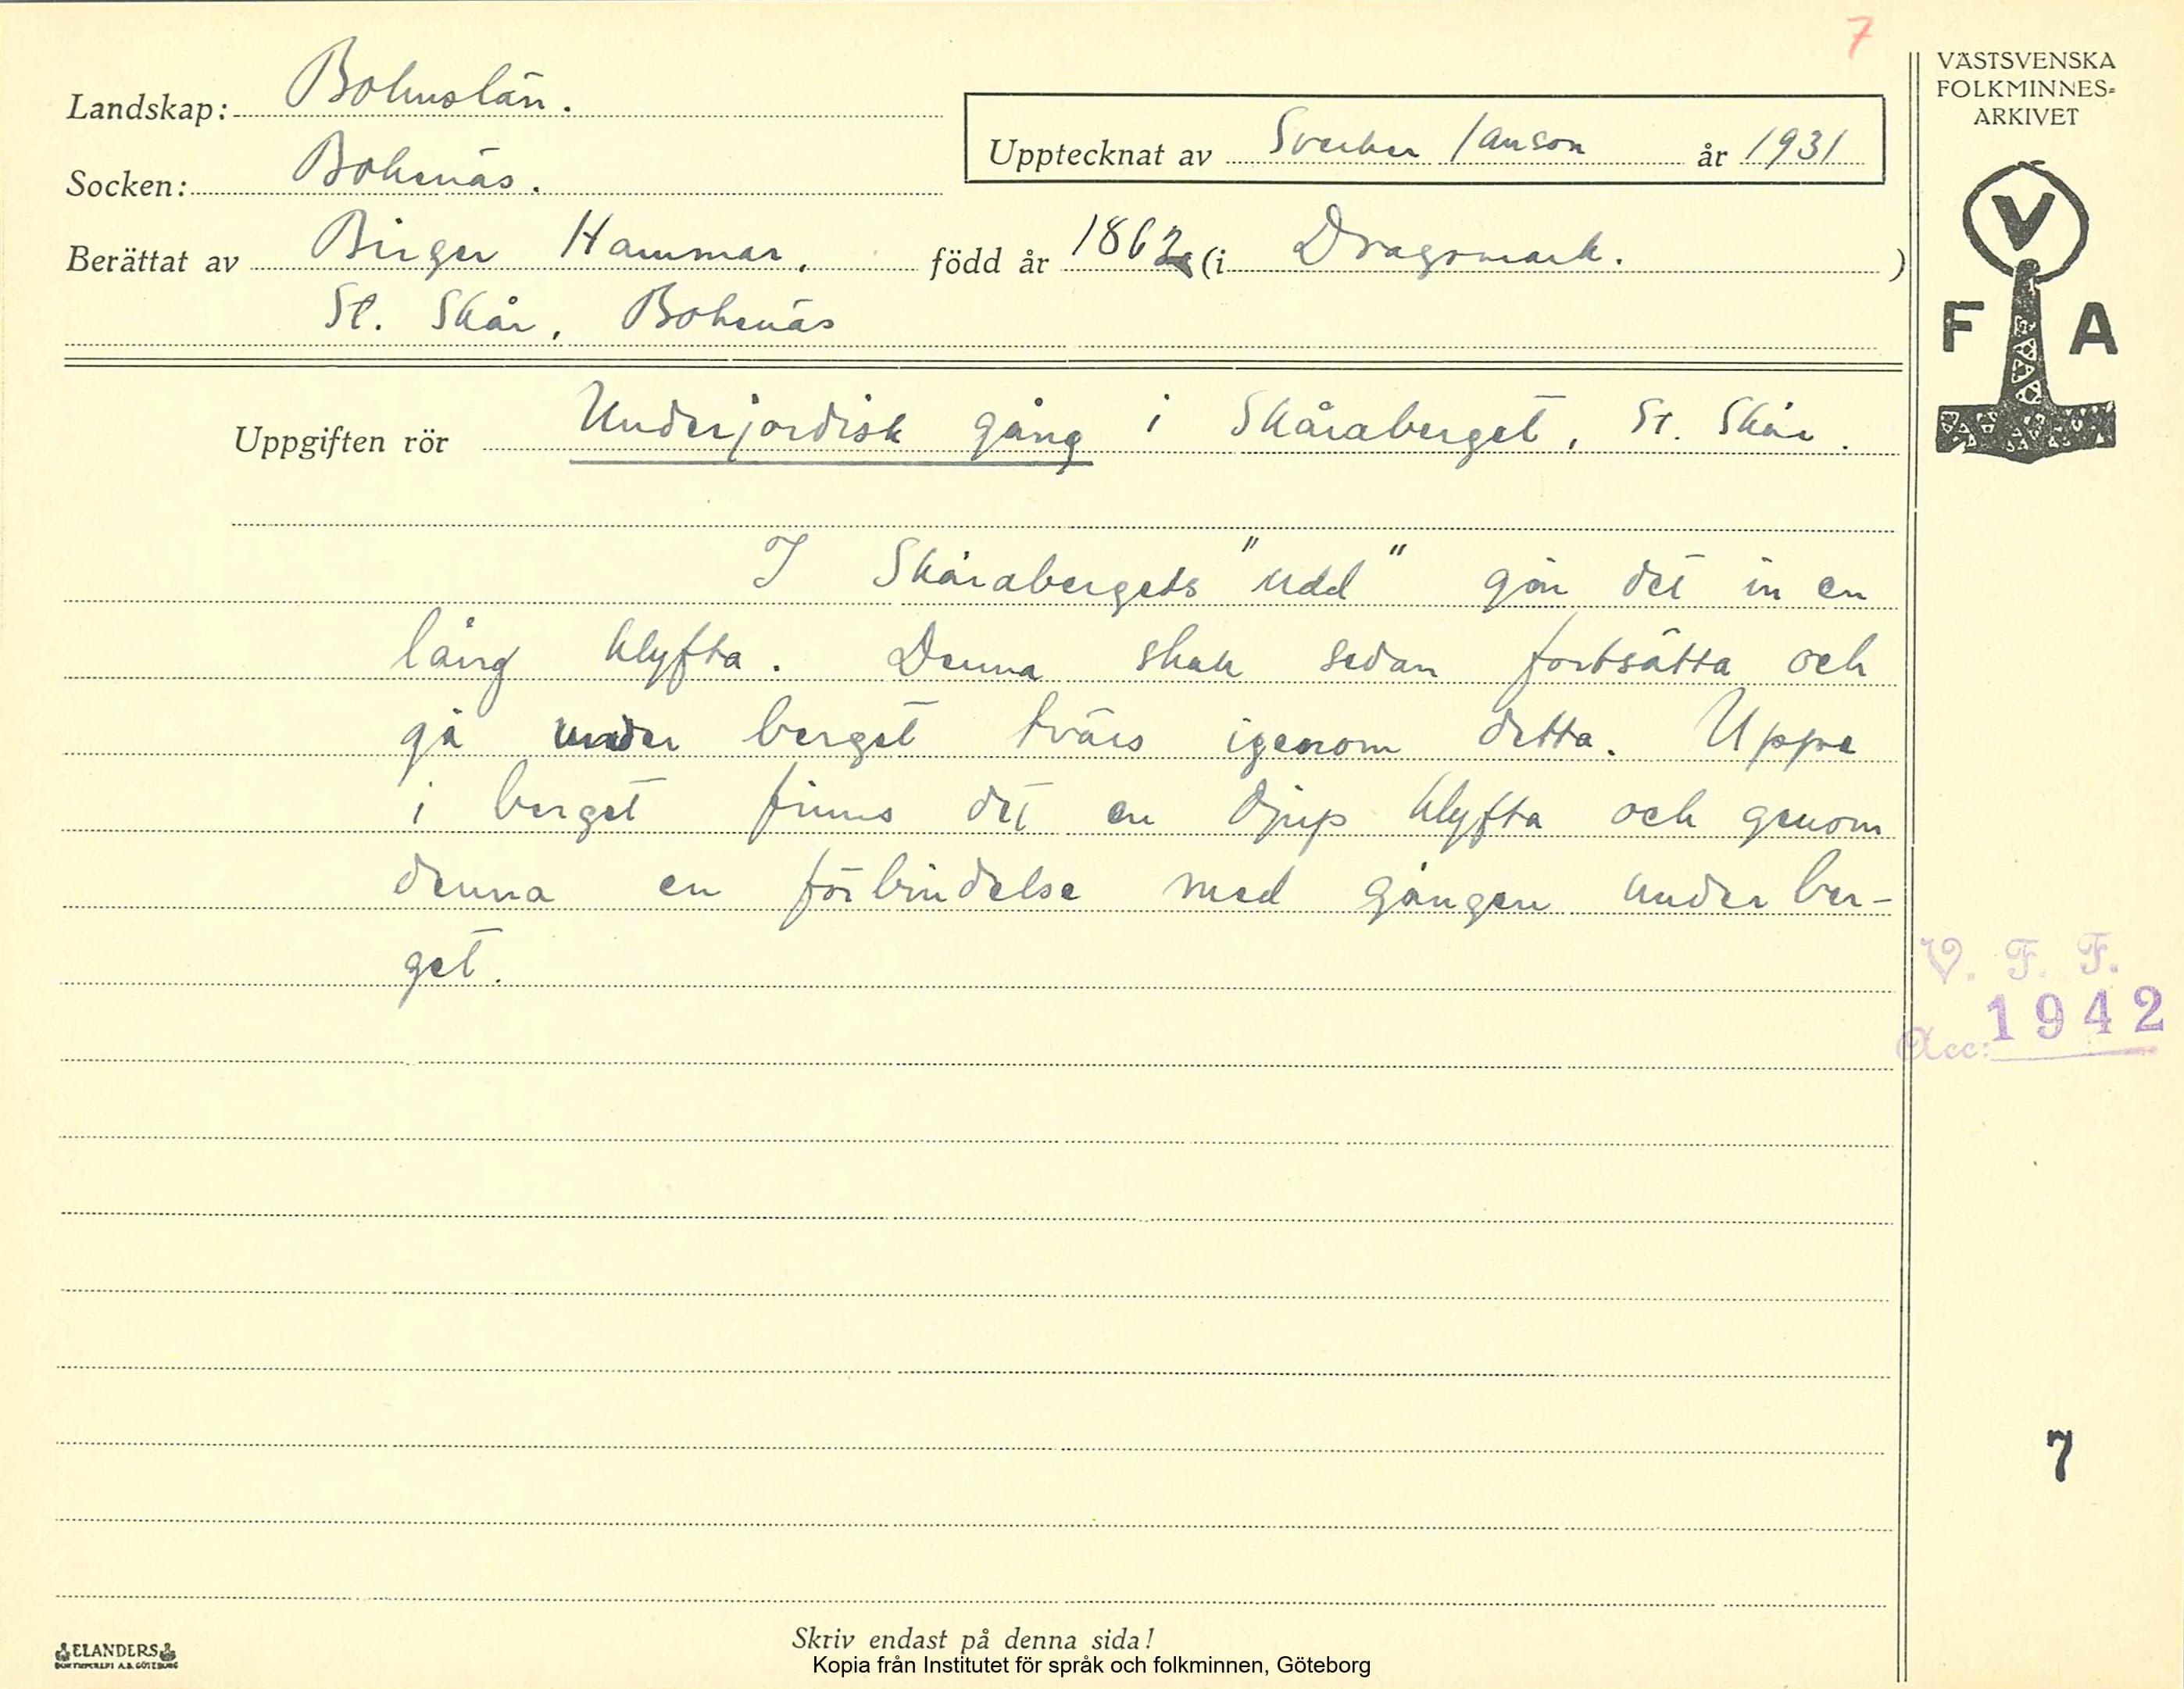 7
VÄSTSVENSKA
FOLKMINNES-
ARKIVET
V
F A
Landskap: Bohuslän.
Upptecknat av Sverker Janson år 1931
Socken: Bokenäs.
Berättat av Birger Hammar, född år 1862 (i Dragsmark. )
St. Skår, Bokenäs
Uppgiften rör Underjordisk gång i Skåraberget, St. Skår.
I Skårabergets "udd" går det in en
lång klyfta. Denna skall sedan fortsätta och
gå under berget tvärs igenom detta. Uppe
i berget finns det en djup klyfta och genom
denna en förbindelse med gången under ber-
get.
V. F. F.
Acc: 1942
7
Skriv endast på denna sida!
ELANDERS
BOKTRYCKERI A.B. GÖTEBORG
Kopia från Institutet för språk och folkminnen, Göteborg